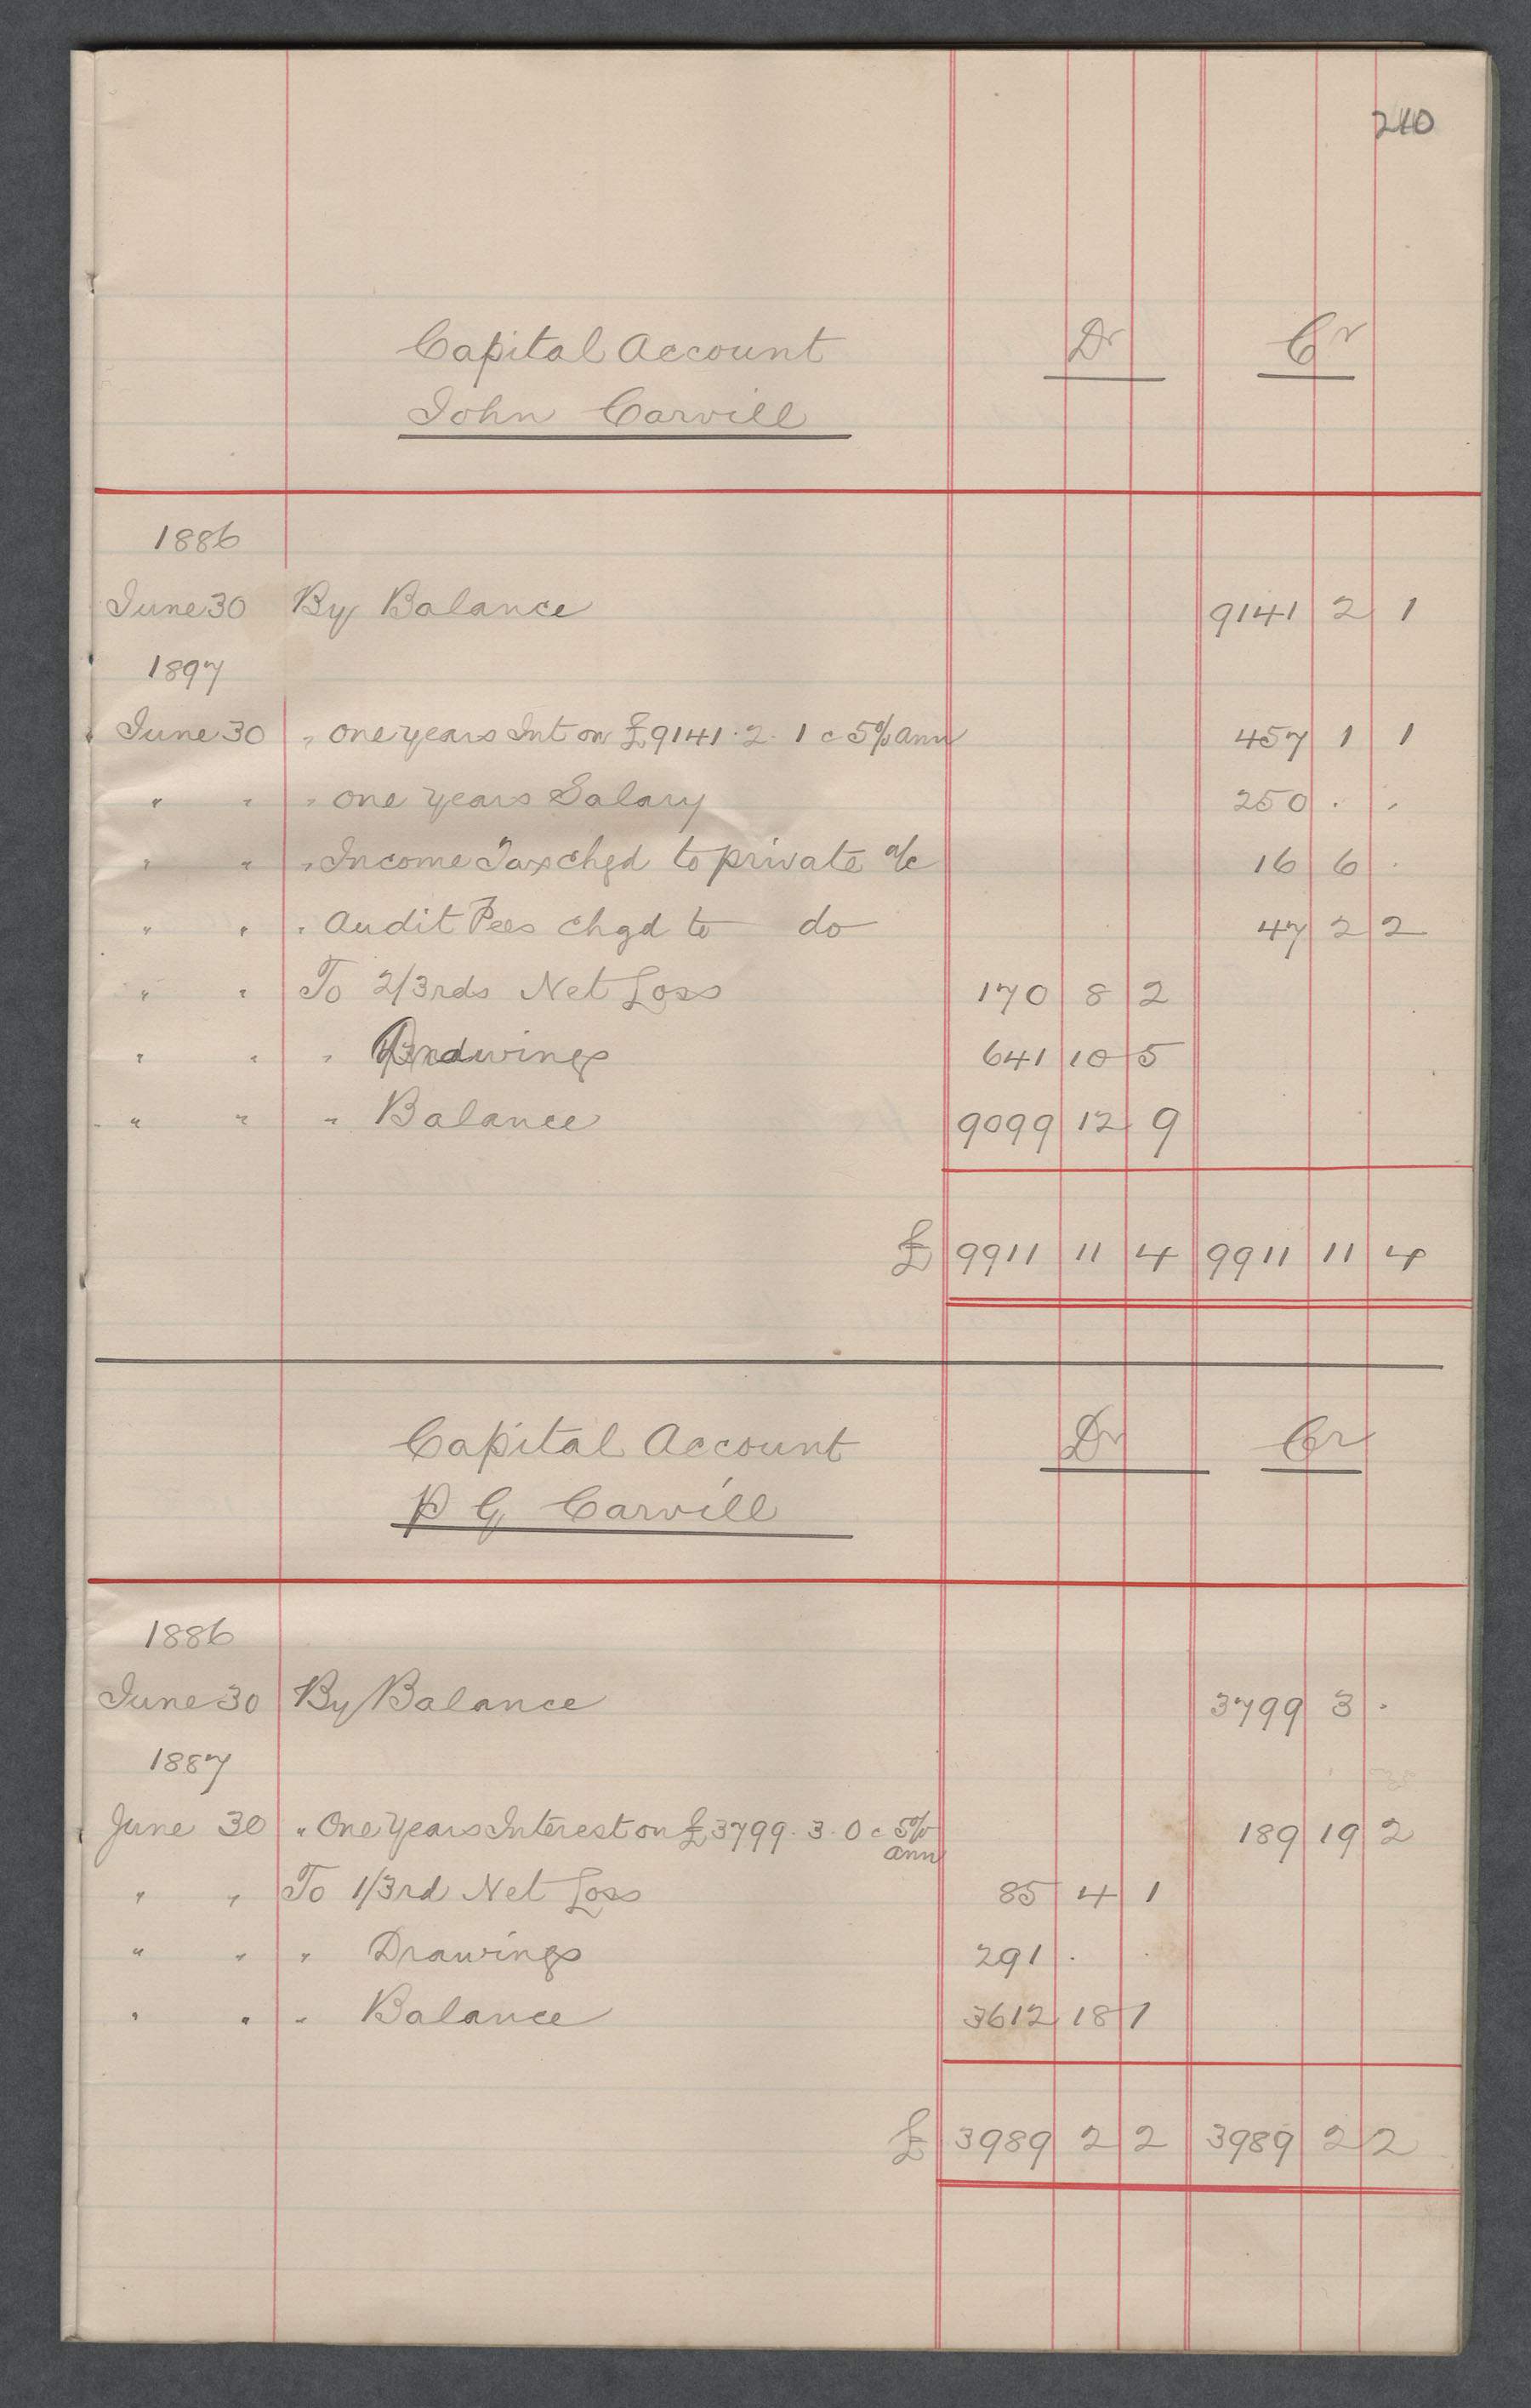 210
Capital Account Dr Cr
John Carvill
1886
June 30 By Balance 9141 2 1
1897
June 30 " one years Int on £9141.2.1 c 5% ann 457 1 1
" " " one years Salary 250 . .
" " " Income Tax chgd to private a/c 16 6 .
" " " Audit Fees chgd to do 47 2 2
" " To 2/3rds Net Loss 170 8 2
" " " Drawings 641 10 5
" " " Balance 9099 12 9
£ 9911 11 4 9911 11 4
Capital Account Dr Cr
P G Carvill
1886
June 30 By Balance 3799 3 .
1887
June 30 " One Years Interest on £3799.3.0 c 5% 189 19 2
ann
" " To 1/3rd Net Loss 85 4 1
" " " Drawings 291 . .
" " " Balance 3612 18 1
£ 3989 2 2 3989 2 2